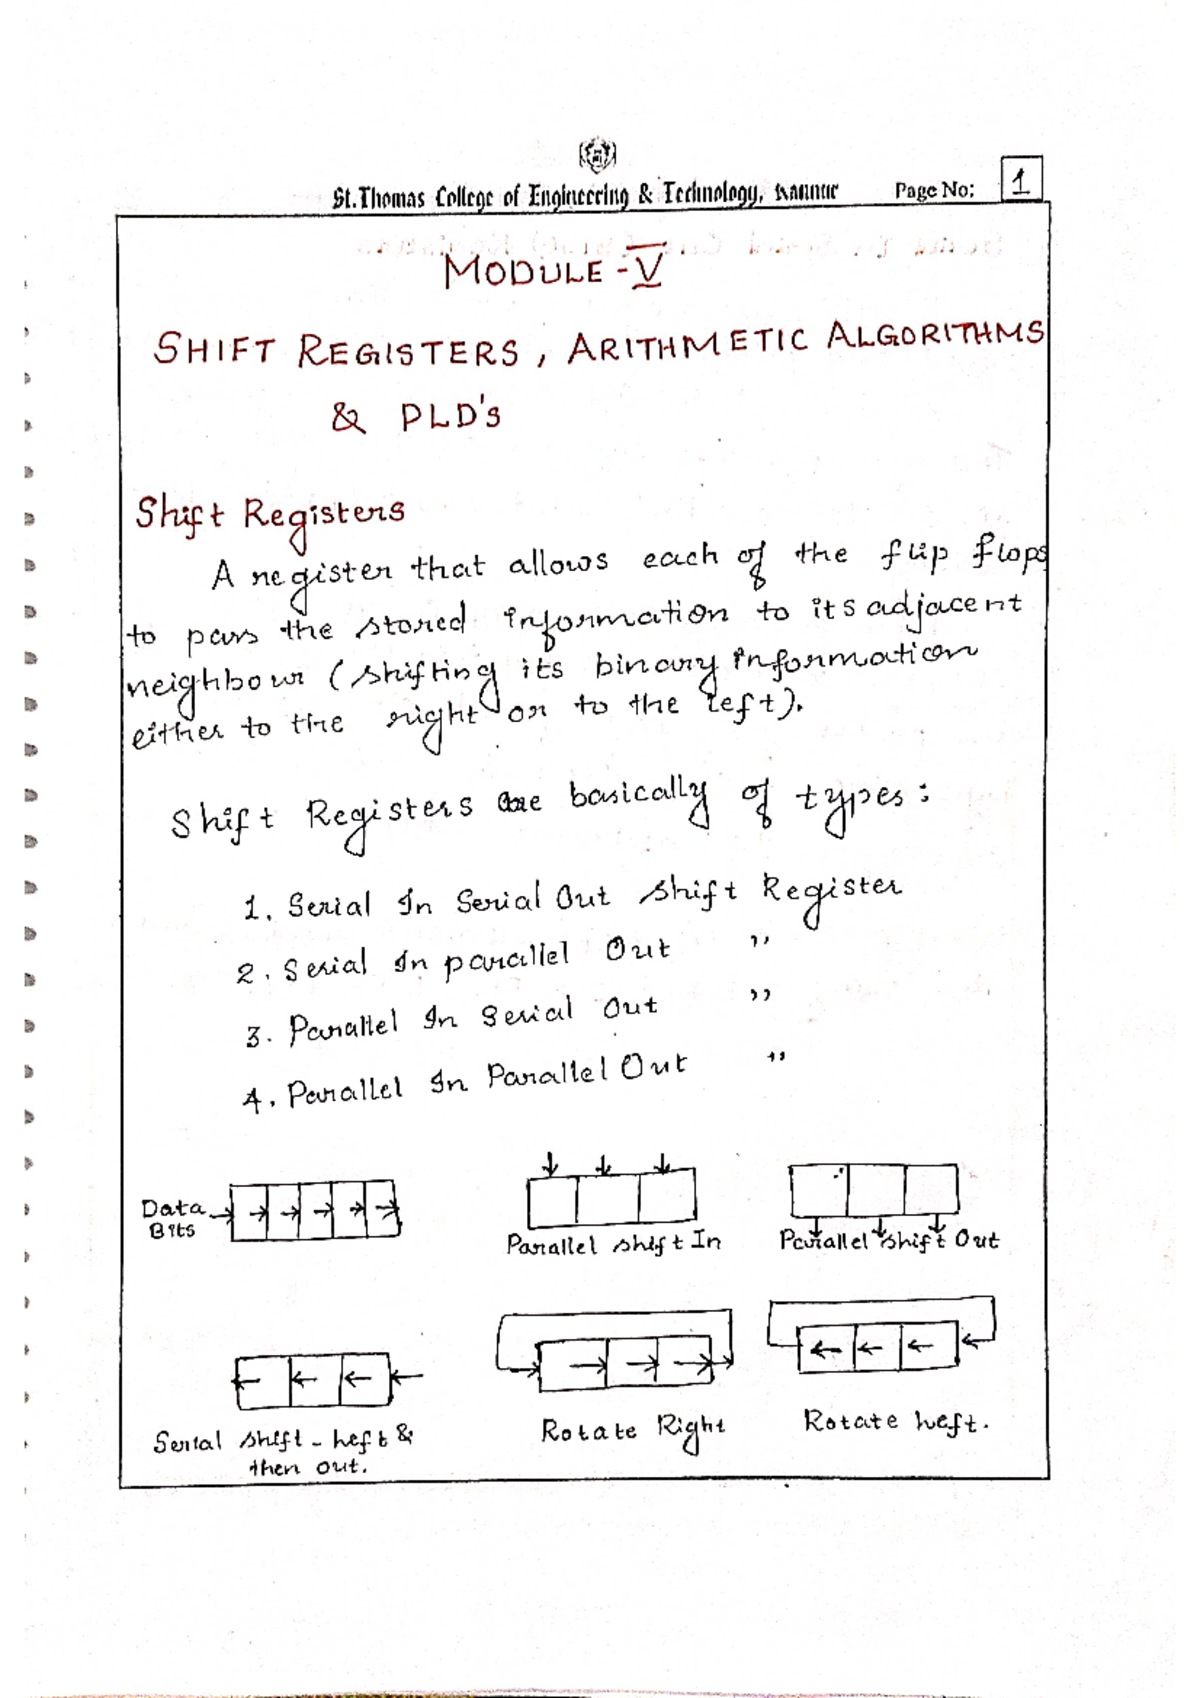 St.Thomas College of Engineering & Technology, Kannur Page No: 1
MODULE - V
SHIFT REGISTERS, ARITHMETIC ALGORITHMS
& PLD's
Shift Registers
A register that allows each of the flip flops
to pass the stored information to its adjacent
neighbour (shifting its binary information
either to the right or to the left).
Shift Registers are basically of types:
1. Serial In Serial Out Shift Register
2. Serial In parallel Out "
3. Parallel In Serial Out "
4. Parallel In Parallel Out "
Data
Bits
Parallel shift In
Parallel shift Out
Serial shift - Left &
then out.
Rotate Right
Rotate Left.